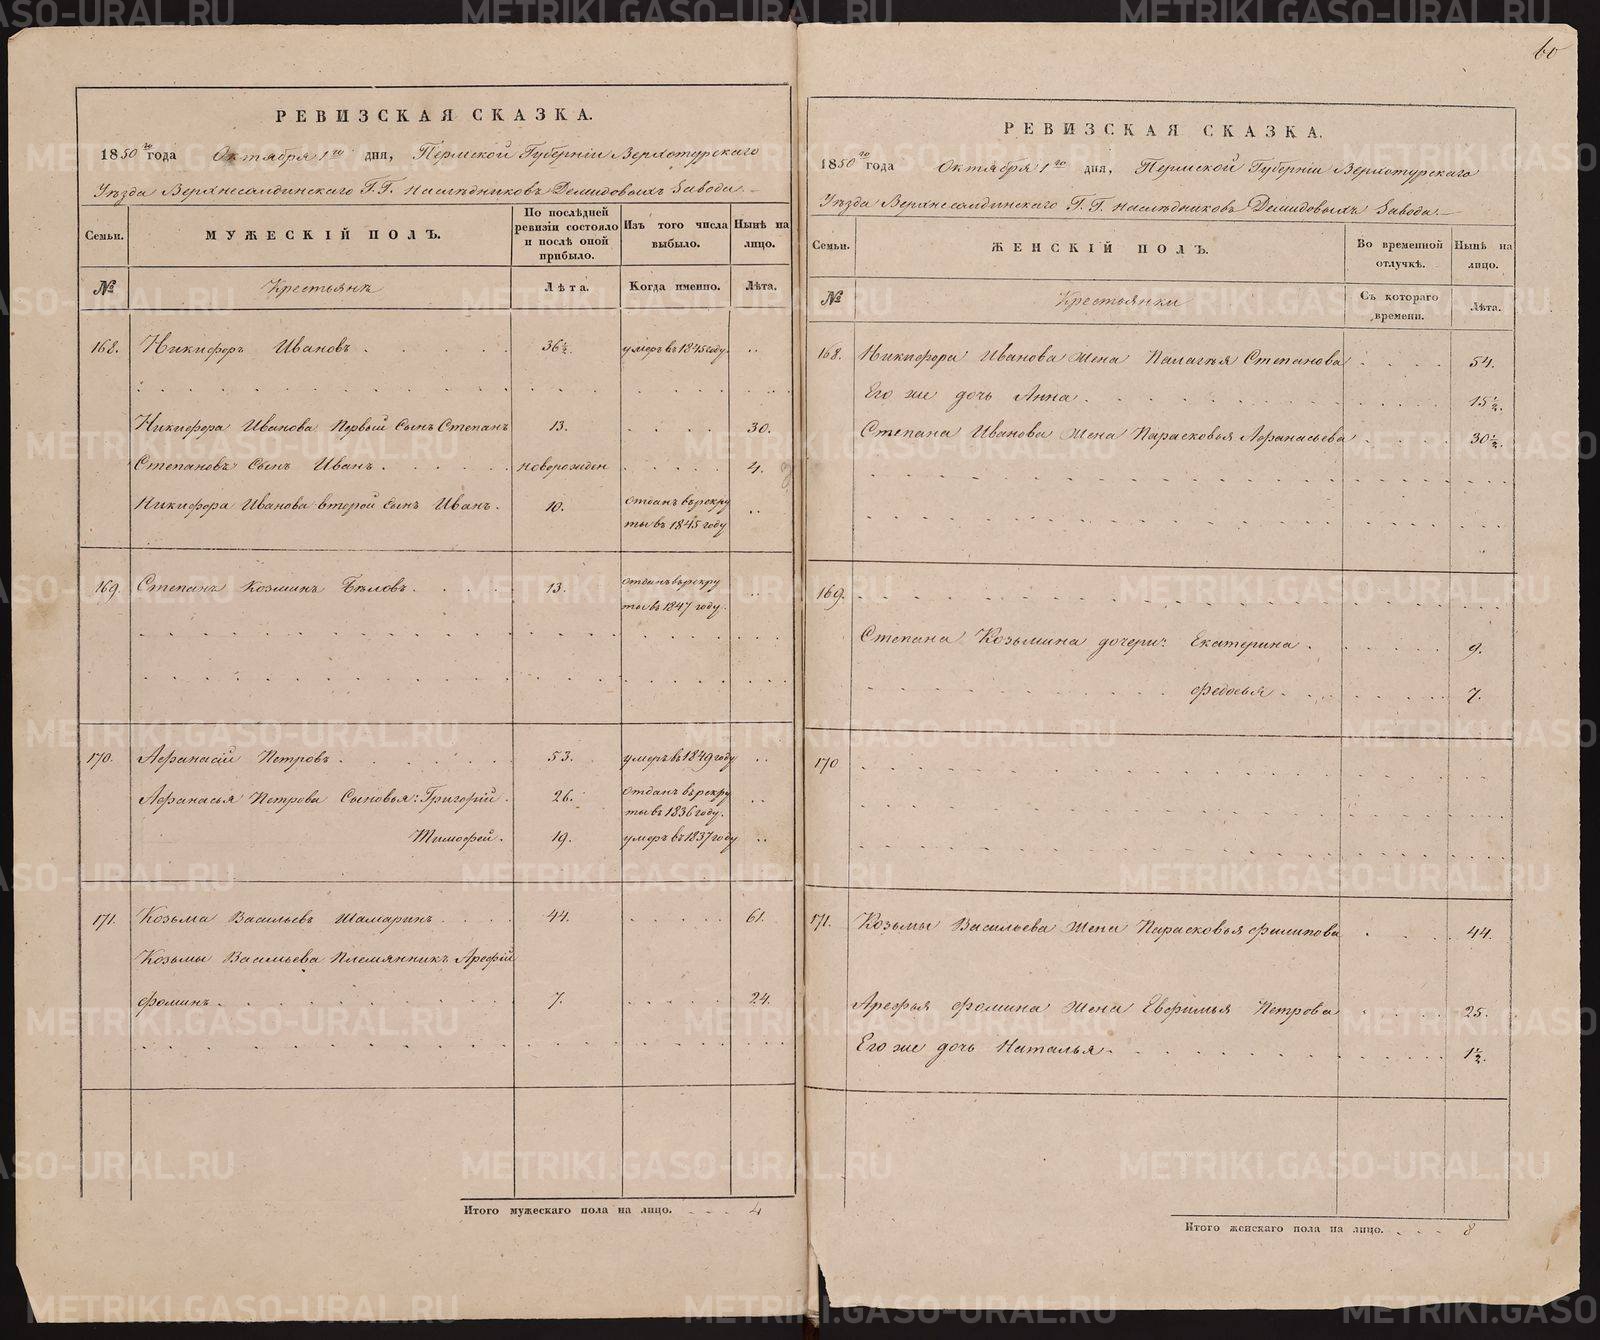 60
РЕВИЗСКАЯ СКАЗКА.
1850го года Октября 1го дня, Пермской Губерніи Верхотурскаго
Уѣзда Верхнесалдинскаго Г.Г. Наслѣдниковъ Демидовыхъ Завода
Семьи. МУЖЕСКІЙ ПОЛЪ. По послѣдней ревизіи состояло и послѣ оной прибыло. Изъ того числа выбыло. Нынѣ на лицо.
№ Крестьянъ Лѣта. Когда именно. Лѣта.
168. Никифоръ Ивановъ 36½. умеръ въ 1845 году.
Никифора Иванова Первый Сынъ Степанъ 13. 30.
Степановъ Сынъ Иванъ. новорожден 4.
Никифора Иванова второй Сынъ Иванъ. 10. отданъ въ рекру
ты въ 1845 году
169. Степанъ Козминъ Бѣловъ. 13. отданъ въ рекру
ты въ 1847 году.
170. Афанасій Петровъ. 53. умеръ въ 1849 году
Афанасья Петрова Сыновья: Григорій. 26. отданъ въ рекру
ты въ 1836 году.
Тимофей. 19. умеръ въ 1837 году
171. Козьма Васильевъ Шамаринъ 44. 61.
Козьмы Васильева Племянникъ Арефій
Фоминъ 7. 24.
Итого мужескаго пола на лицо. 4
РЕВИЗСКАЯ СКАЗКА.
1850го года Октября 1го дня, Пермской Губерніи Верхотурскаго
Уѣзда Верхнесалдинскаго Г.Г. Наслѣдниковъ Демидовыхъ Завода
Семьи. ЖЕНСКІЙ ПОЛЪ. Во временной отлучкѣ. Нынѣ на лицо.
№ Крестьянки Съ котораго времени. Лѣта.
168. Никифора Иванова жена Палагѣя Степанова 54.
Его же дочь Анна. 15½.
Степана Иванова жена Парасковья Афанасьева 30½.
169.
Степана Козьмина дочери: Екатерина. 9.
Федосья 7.
170
171. Козьмы Васильева жена Парасковья Филипова 44.
Арефья Фомина жена Евфимья Петрова 25.
Его же дочь Наталья. 1½.
Итого женскаго пола на лицо. 8
METRIKI.GASO-URAL.RU